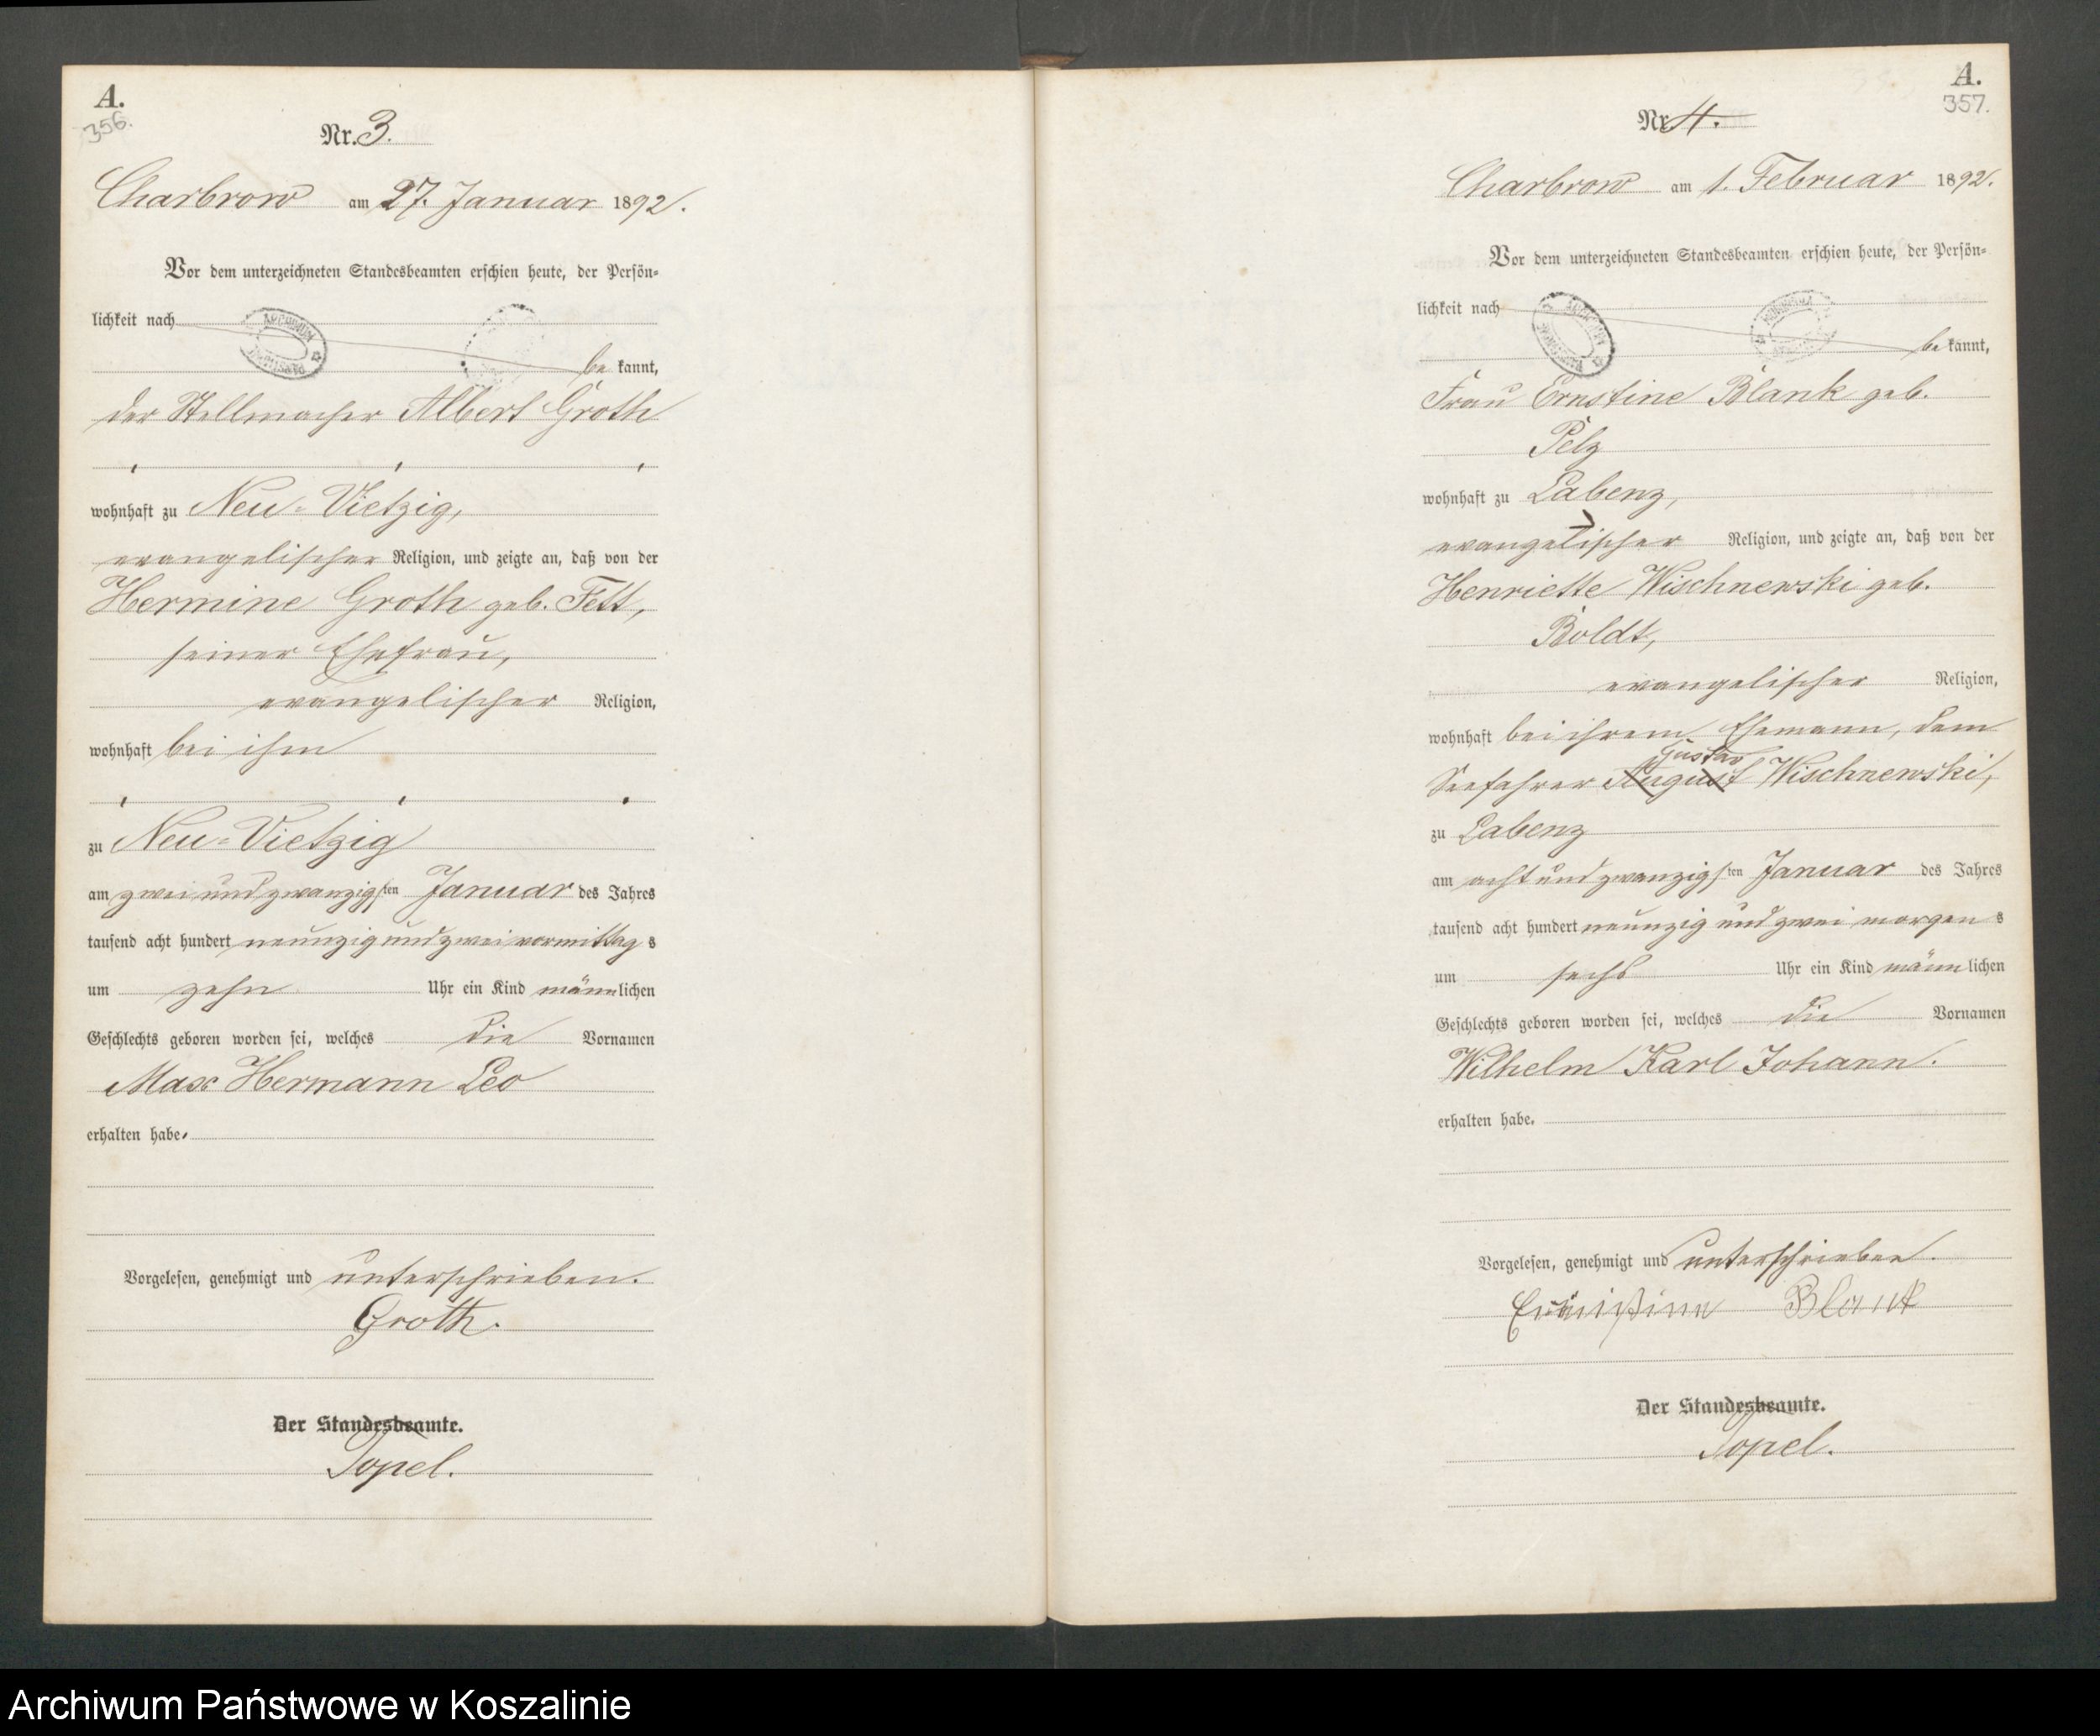 A.
356.
Nr. 3.
Charbrow am 27. Januar 1892.
Vor dem unterzeichneten Standesbeamten erschien heute, der Persön-
lichkeit nach
be kannt,
der Stellmacher Albert Groth
wohnhaft zu Neu-Vietzig,
evangelischer Religion, und zeigte an, daß von der
Hermine Groth geb. Fett,
seiner Ehefrau,
evangelischer Religion,
wohnhaft bei ihm
zu Neu-Vietzig
am zwei und zwanzigsten Januar des Jahres
tausend acht hundert neunzig und zwei vormittags
um zehn Uhr ein Kind männlichen
Geschlechts geboren worden sei, welches die Vornamen
Max Hermann Leo
erhalten habe.
Vorgelesen, genehmigt und unterschrieben.
Groth.
Der Standesbeamte.
Topel.
A.
357.
Nr. 4.
Charbrow am 1. Februar 1892.
Vor dem unterzeichneten Standesbeamten erschien heute, der Persön-
lichkeit nach
be kannt,
Frau Ernstine Blank geb.
Pelz
wohnhaft zu Labenz,
evangelischer Religion, und zeigte an, daß von der
Henriette Wischnewski geb.
Boldt,
evangelischer Religion,
wohnhaft bei ihrem Ehemann, dem
Gustav
Seefahrer August Wischnewski,
zu Labenz
am acht und zwanzigsten Januar des Jahres
tausend acht hundert neunzig und zwei morgens
um sechs Uhr ein Kind männlichen
Geschlechts geboren worden sei, welches die Vornamen
Wilhelm Karl Johann.
erhalten habe.
Vorgelesen, genehmigt und unterschrieben.
Blank
Der Standesbeamte.
Topel.
Archiwum Państwowe w Koszalinie